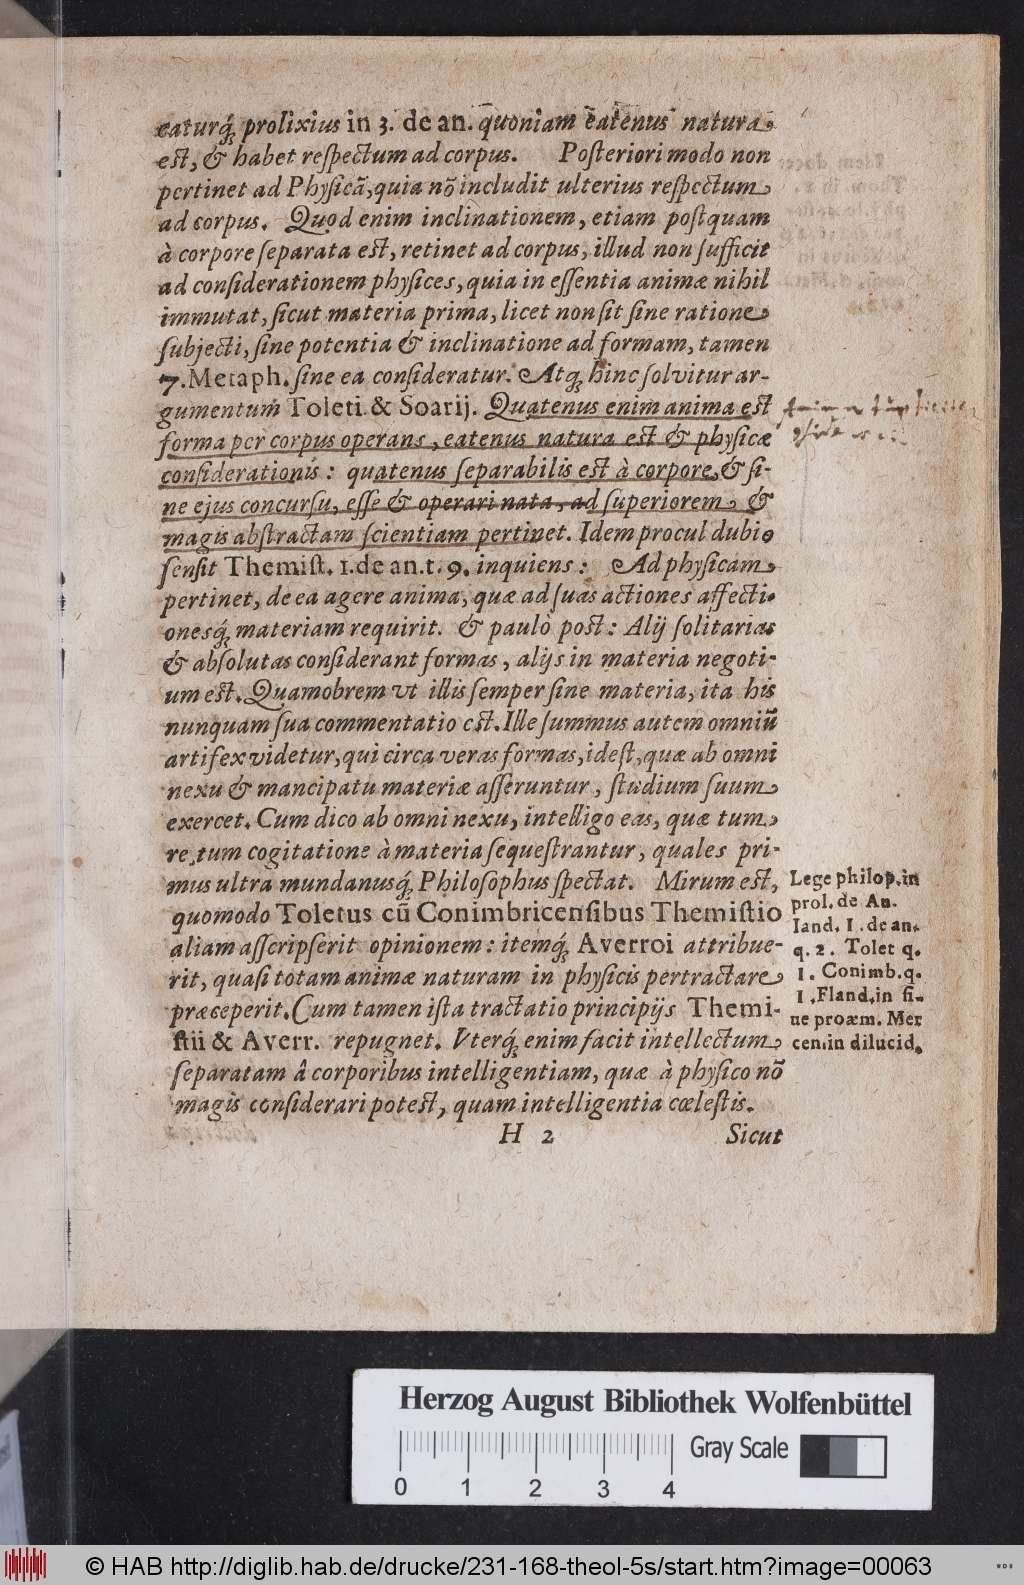 eaturq́; prolixius in 3. de an. quoniam eatenus natura
est, & habet reſpectum ad corpus. Poſteriori modo non
pertinet ad Phyſicã, quia nõ includit ulterius reſpectum
ad corpus. Quod enim inclinationem, etiam poſtquam
à corpore ſeparata est, retinet ad corpus, illud non ſufficit
ad conſiderationem phyſices, quia in eſſentia animæ nihil
immutat, ſicut materia prima, licet non ſit ſine ratione
ſubjecti, ſine potentia & inclinatione ad formam, tamen
7. Metaph. ſine ea conſideratur. Atq; hinc ſolvitur ar-
gumentum Toleti & Soarij. Quatenus enim anima est
forma per corpus operans, eatenus natura est & phyſicæ
conſiderationis: quatenus ſeparabilis est à corpore, & ſi-
ne ejus concurſu, eſſe & operari nata, ad ſuperiorem &
magis abſtractam ſcientiam pertinet. Idem procul dubio
ſenſit Themiſt. 1. de an. t. 9. inquiens: Ad phyſicam
pertinet, de ea agere anima, quæ ad ſuas actiones affecti-
onesq́; materiam requirit. & paulò post: Alij ſolitarias
& abſolutas conſiderant formas, alijs in materia negoti-
um est. Quamobrem vt illis ſemper ſine materia, ita his
nunquam ſua commentatio est. Ille ſummus autem omniũ
artifex videtur, qui circa veras formas, id eſt, quæ ab omni
nexu & mancipatu materiæ aſſeruntur, ſtudium ſuum
exercet. Cum dico ab omni nexu, intelligo eas, quæ tum
re, tum cogitatione à materia ſequeſtrantur, quales pri-
mus ultra mundanusq́; Philoſophus ſpectat. Mirum est,
quomodo Toletus cũ Conimbricenſibus Themiſtio
aliam aſſcripſerit opinionem: itemq́; Averroi attribue-
rit, quaſi totam animæ naturam in phyſicis pertractare
præceperit. Cum tamen iſta tractatio principijs Themi-
ſtii & Averr. repugnet. Vterq́; enim facit intellectum
ſeparatam â corporibus intelligentiam, quæ à phyſico nõ
magis conſiderari potest, quam intelligentia cœleſtis.
H 2 Sicut
Lege philop. in
prol. de An.
Iand. 1. de an.
q. 2. Tolet q.
1. Conimb. q.
1. Fland. in fi-
ne proæm. Mer
cen. in dilucid.
Herzog August Bibliothek Wolfenbüttel
Gray Scale
0 1 2 3 4
© HAB http://diglib.hab.de/drucke/231-168-theol-5s/start.htm?image=00063